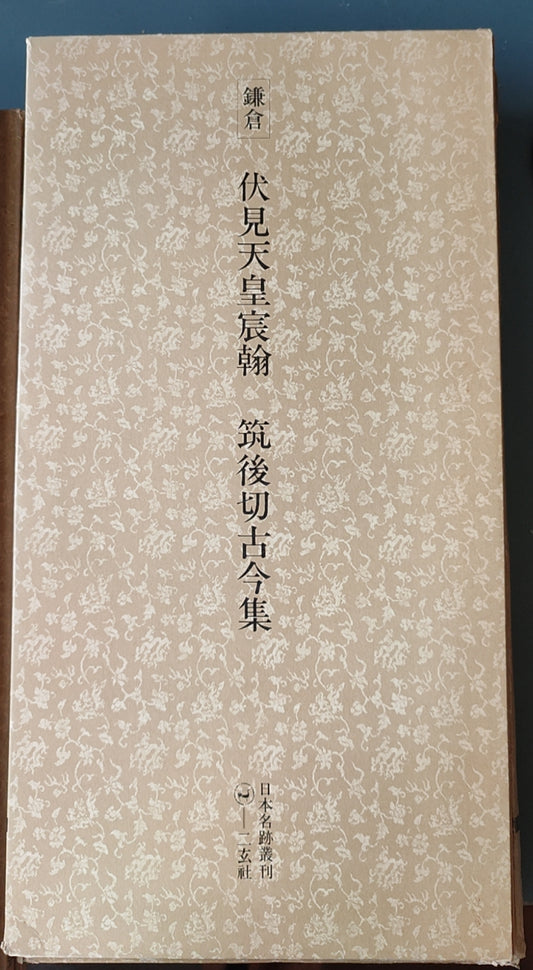 鎌倉
伏見天皇宸翰 筑後切古今集
日本名跡叢刊
二玄社